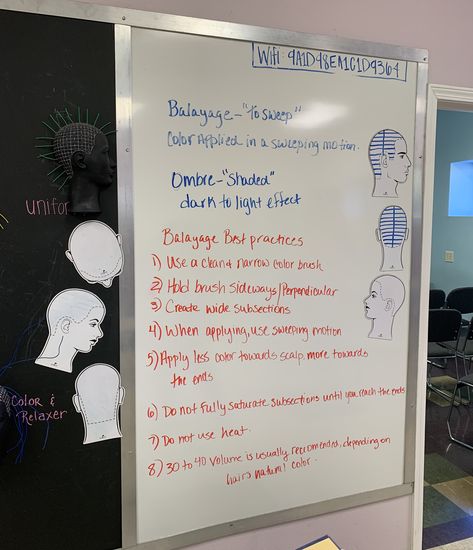 Wifi: 9A1D48EA1C1D9364
Balayage - "To sweep"
Color Applied in a sweeping motion.
Ombre - "Shaded"
dark to light effect
Balayage Best practices
1) Use a clean & narrow color brush
2) Hold brush sideways/Perpendicular
3) Create wide subsections
4) When applying, use sweeping motion
5) Apply less color towards scalp, more towards
the ends
6) Do not fully saturate subsections until you reach the ends
7) Do not use heat.
8) 30 to 40 volume is usually recommended, depending on
hair's natural color.
uniform
Color &
Relaxer